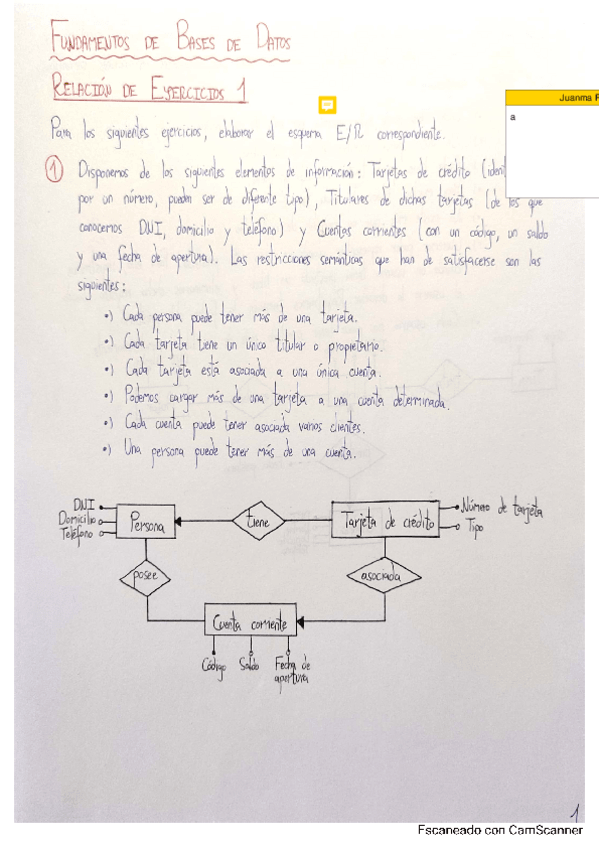 FUNDAMENTOS DE BASES DE DATOS
RELACIÓN DE EJERCICIOS 1
Juanma
a
Para los siguientes ejercicios, elaborar el esquema E/R correspondiente.
1 Disponemos de los siguientes elementos de información: Tarjetas de crédito
por un número, pueden ser de diferente tipo), Titulares de dichas tarjetas (de los que
conocemos DNI, domicilio y teléfono) y Cuentas corrientes (con un código, un saldo
y una fecha de apertura). Las restricciones semánticas que han de satisfacerse son las
siguientes:
•) Cada persona puede tener más de una tarjeta.
•) Cada tarjeta tiene un único titular o propietario.
•) Cada tarjeta está asociada a una única cuenta.
•) Podemos cargar más de una tarjeta a una cuenta determinada.
•) Cada cuenta puede tener asociada varios clientes.
•) Una persona puede tener más de una cuenta.
DNI
Domicilio
Teléfono
Persona
tiene
Tarjeta de crédito
Número de tarjeta
Tipo
posee
asociada
Cuenta corriente
Código
Saldo
Fecha de
apertura
1
Escaneado con CamScanner